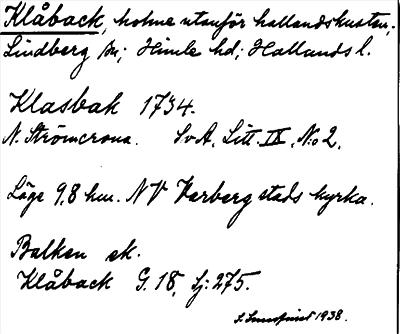 Klåback, holme utanför hallandskusten;
Lindberg sn; Himle hd; Hallands l.
Klasbak 1734.
N. Strömcrona. SvA, Litt. IX, No 2.
Läge 9,8 km. NV Varberg stads kyrka.
Balken ek.
Klåback G. 18, Sj: 275.
1938.